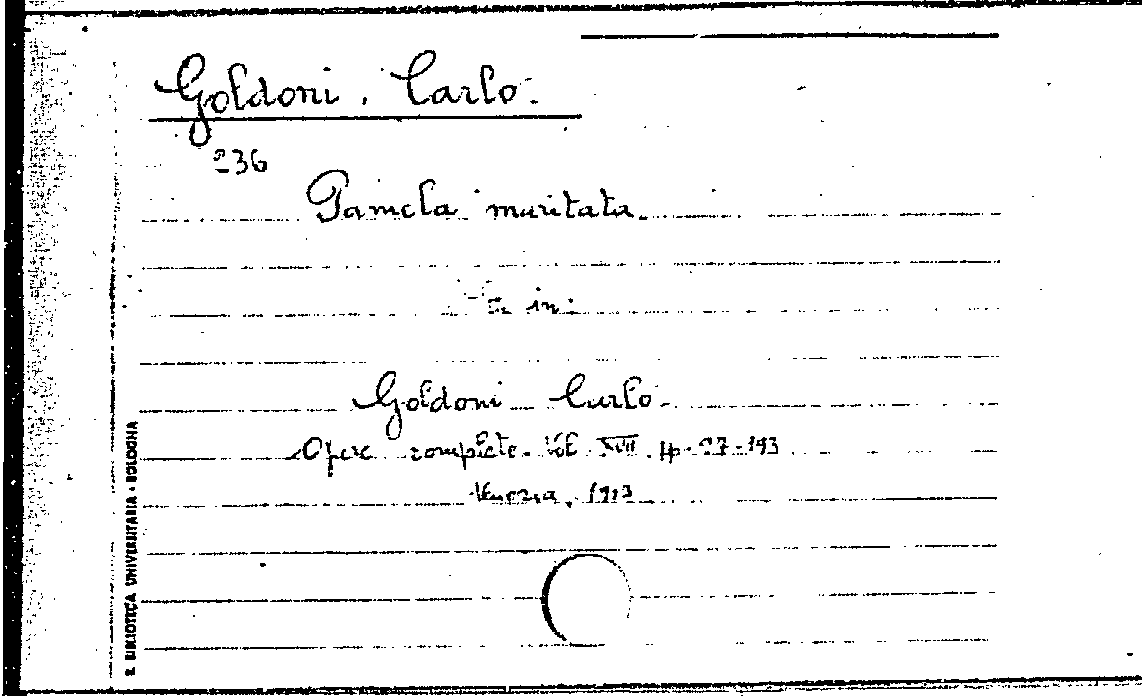 Goldoni, Carlo.
236
Pamela maritata.
in:
Goldoni Carlo
Opere complete. Vol. XVII. pp. 27-193
Venezia, 1913
R. BIBLIOTECA UNIVERSITARIA - BOLOGNA